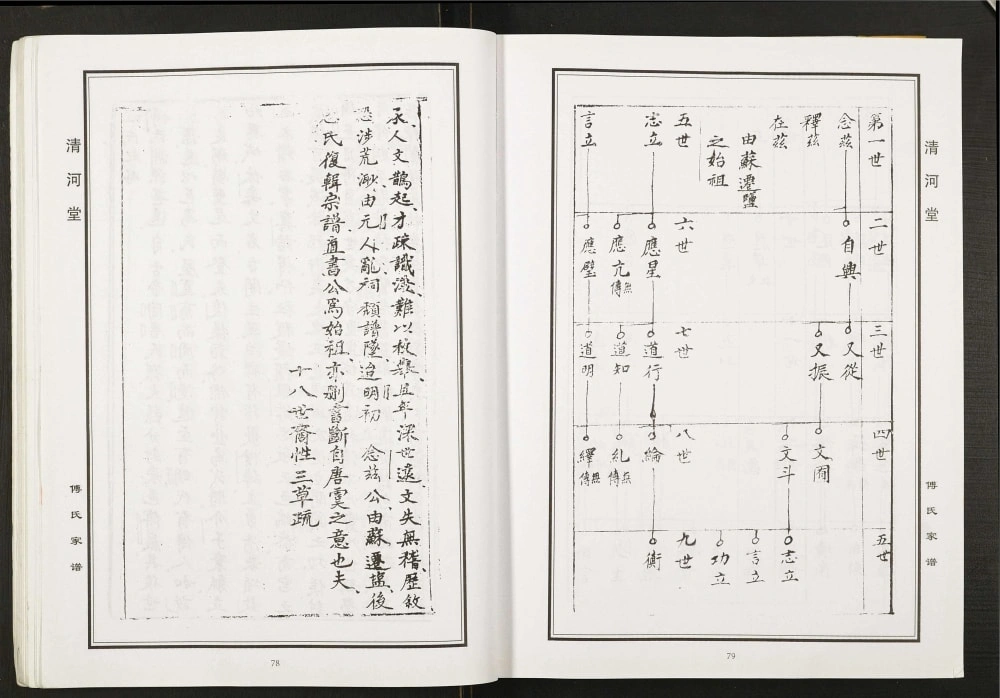 清河堂
傅氏家谱
承人文鵲起才疎識淺難以枚舉且年深世遠文失無稽歷敘
恐涉荒渺由元人亂祠頹譜墜迨明初 念茲公由蘇遷塩後
志氏復輯宗譜直書公爲始祖亦刪書斷自唐虞之意也夫
十八世裔性三草疏
78
清河堂
傅氏家谱
第一世
念茲
釋茲
在茲
由蘇遷鹽
之始祖
二世
自興
三世
又從
又振
四世
文閫
文斗
五世
志立
言立
功立
五世
志立
言立
六世
應星
應亢無傳
應壁
七世
道行
道知
道明
八世
綸
糺無傳
繹無傳
九世
衡
79